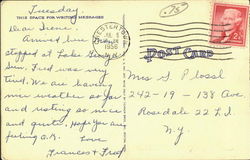 Tuesday.
THIS SPACE FOR WRITING MESSAGES
Dear Irene:
Arrived here
stopped at Lake
Fred was very
tired. We are having
nice weather so far
and resting so nice
and quiet. Hope you are
feeling O.K.
Love
Frances & Fred
1956
POST CARD
Mrs S. Ploesl
242-19-138 Ave.
Rosedale 22 L.I.
N.Y.